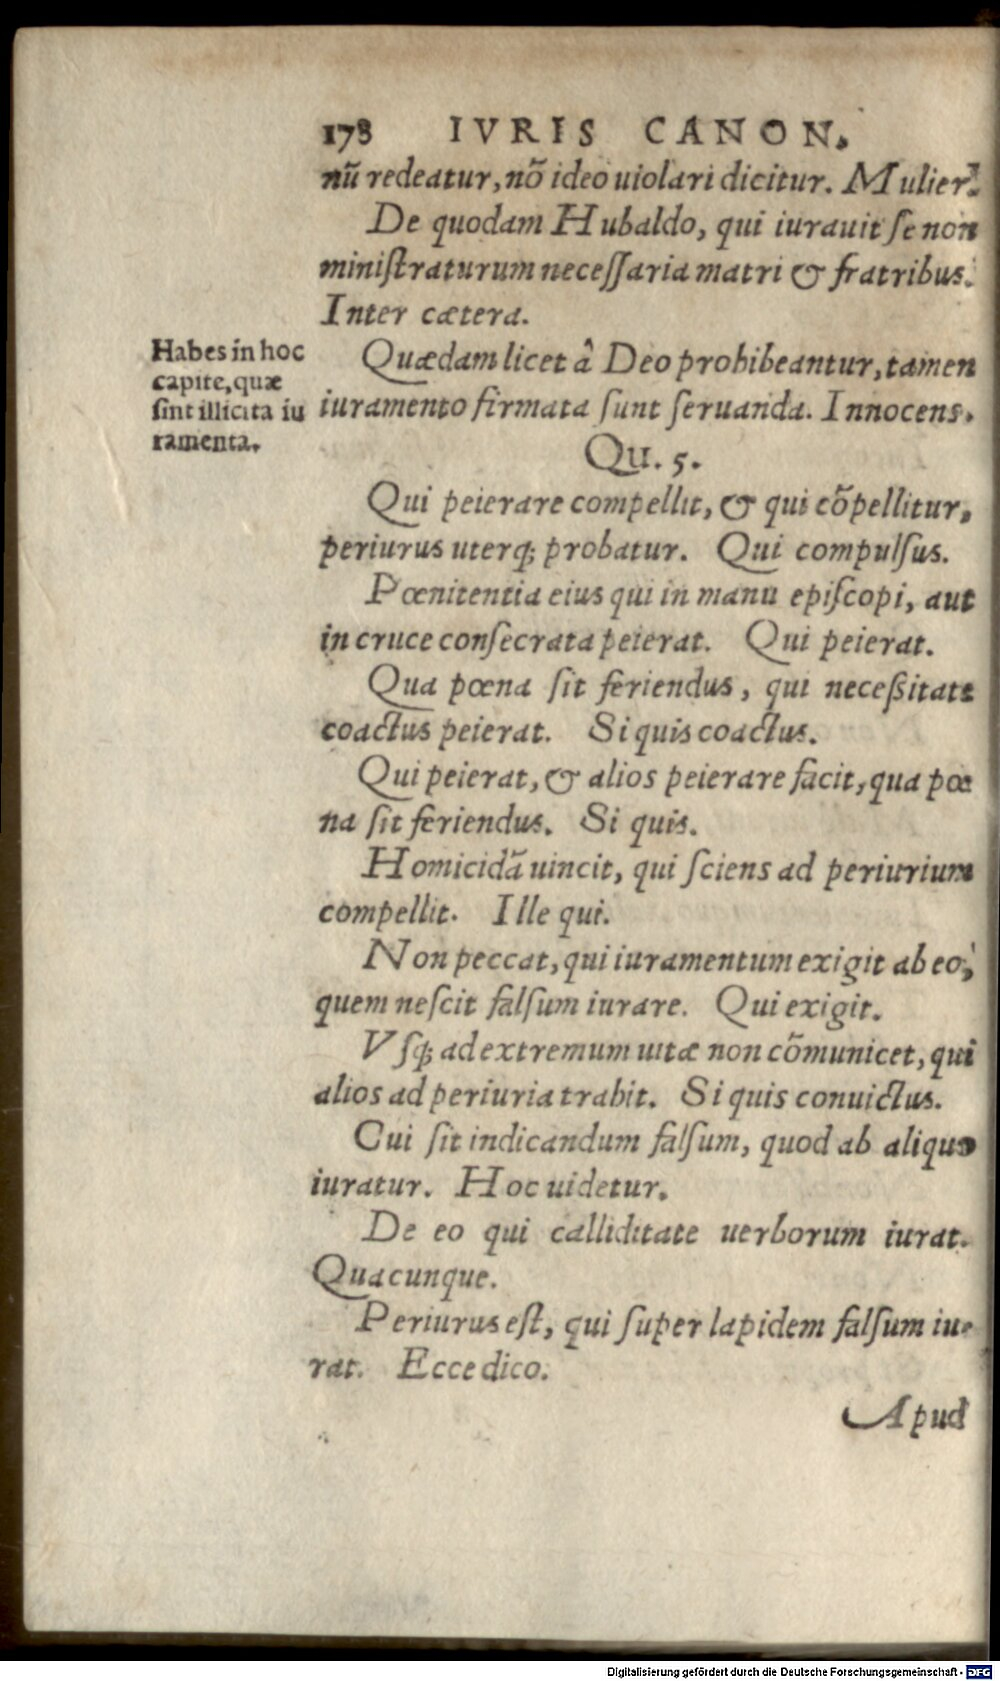 178 IVRIS CANON.
nū redeatur, nõ ideo uiolari dicitur. Mulier.
De quodam Hubaldo, qui iurauit ſe non
miniſtraturum neceſſaria matri & fratribus.
Inter cætera.
Habes in hoc
capite, quæ
ſint illicita iu
ramenta.
Quædam licet â Deo prohibeantur, tamen
iuramento firmata ſunt ſeruanda. Innocens.
Qu. 5.
Qui peierare compellit, & qui cõpellitur,
periurus uterq; probatur. Qui compulſus.
Pœnitentia eius qui in manu epiſcopi, aut
in cruce conſecrata peierat. Qui peierat.
Qua pœna ſit feriendus, qui neceßitate
coactus peierat. Si quis coactus.
Qui peierat, & alios peierare facit, qua pœ
na ſit feriendus. Si quis.
Homicidã uincit, qui ſciens ad periurium
compellit. Ille qui.
Non peccat, qui iuramentum exigit ab eo,
quem neſcit falſum iurare. Qui exigit.
Vſq; ad extremum uitæ non cõmunicet, qui
alios ad periuria trahit. Si quis conuictus.
Cui ſit indicandum falſum, quod ab aliquo
iuratur. Hoc uidetur.
De eo qui calliditate uerborum iurat.
Quacunque.
Periurus eſt, qui ſuper lapidem falſum iu-
rat. Ecce dico.
Apud
Digitalisierung gefördert durch die Deutsche Forschungsgemeinschaft - DFG